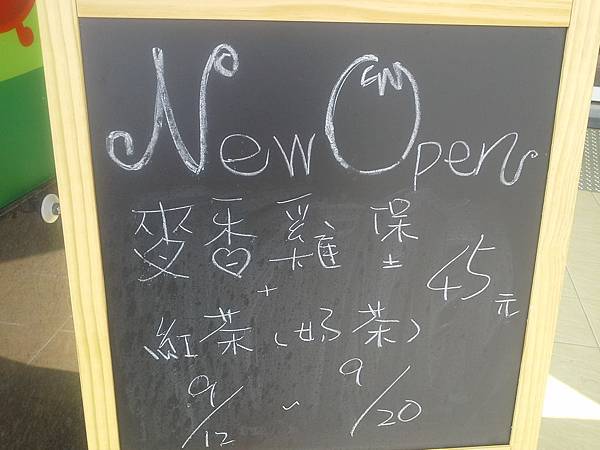 New Open
麥香雞堡 45元
+
紅茶(奶茶)
9/12 ~ 9/20